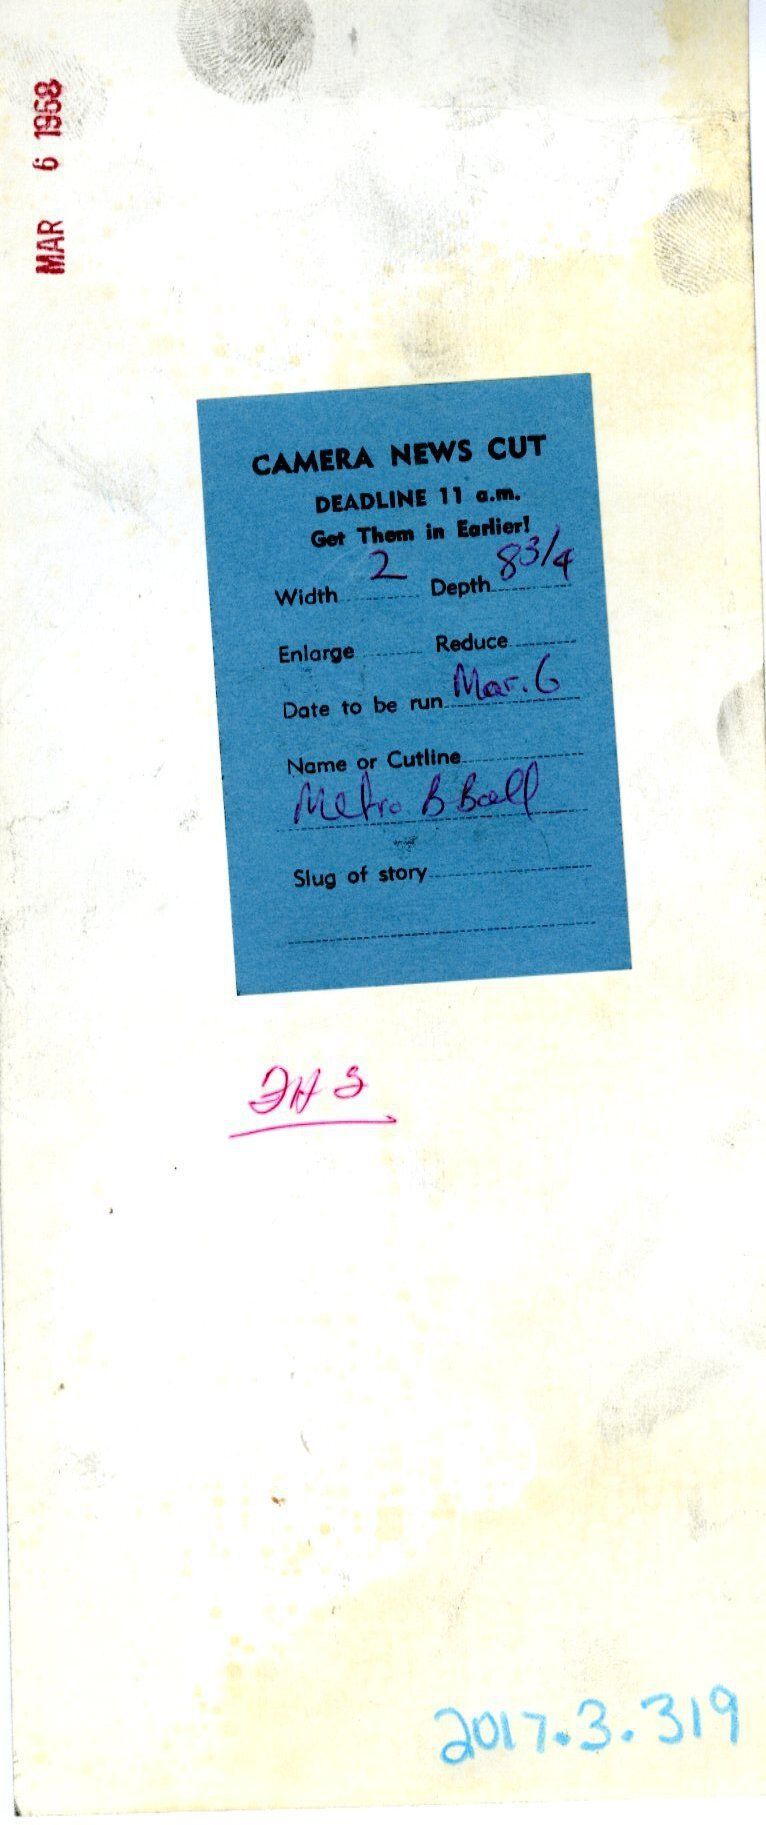 MAR 6 1968
CAMERA NEWS CUT
DEADLINE 11 a.m.
Get Them in Earlier!
Width 2 Depth 8 3/4
Enlarge Reduce
Date to be run Mar. 6
Name or Cutline
Metro B Ball
Slug of story
2017.3.319